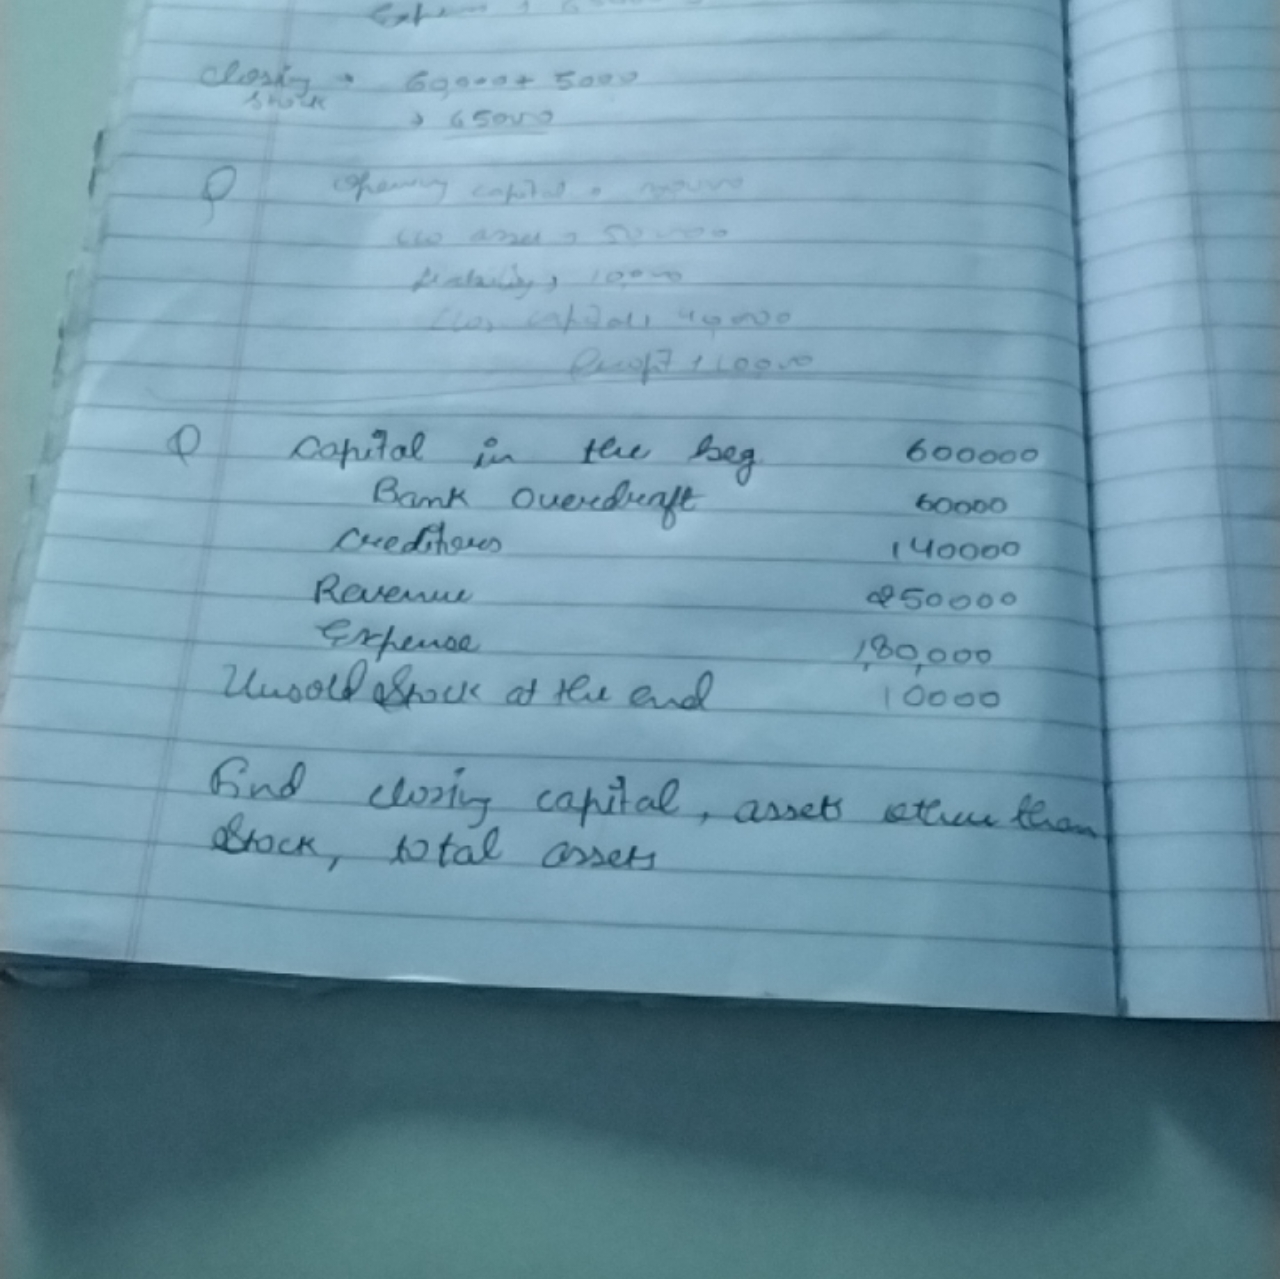 Closing → 60,000 + 5000
Stock
→ 65000
Q Opening capital =
Clo assets = 50000
10,000
Clos capital = 40,000
Profit = 10,000
Q Capital in the beg 600000
Bank Overdraft 60000
Creditors 140000
Revenue 250000
Expense 1,80,000
Unsold Stock at the end 10000
Find closing capital, assets other than
Stock, total assets